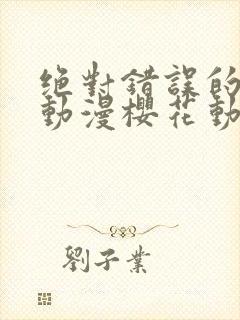 绝對錯誤的
動漫櫻花動
劉子業